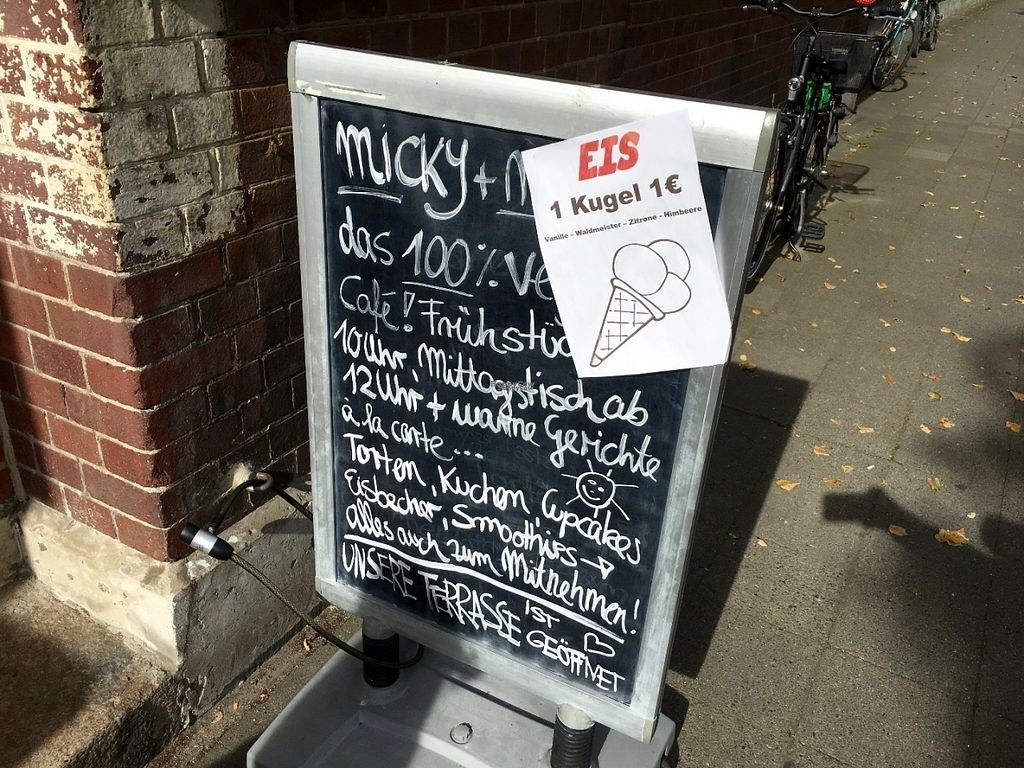 micky + M
das 100% ve
Café! Frühstüc
10 Uhr, Mittagstisch ab
12 Uhr + warme Gerichte
à la carte...
Torten, Kuchen, Cupcakes
Eisbecher, Smoothies →
alles auch zum Mitnehmen!
UNSERE TERRASSE IST GEÖFFNET
EIS
1 Kugel 1€
Vanille – Waldmeister – Zitrone - Himbeere